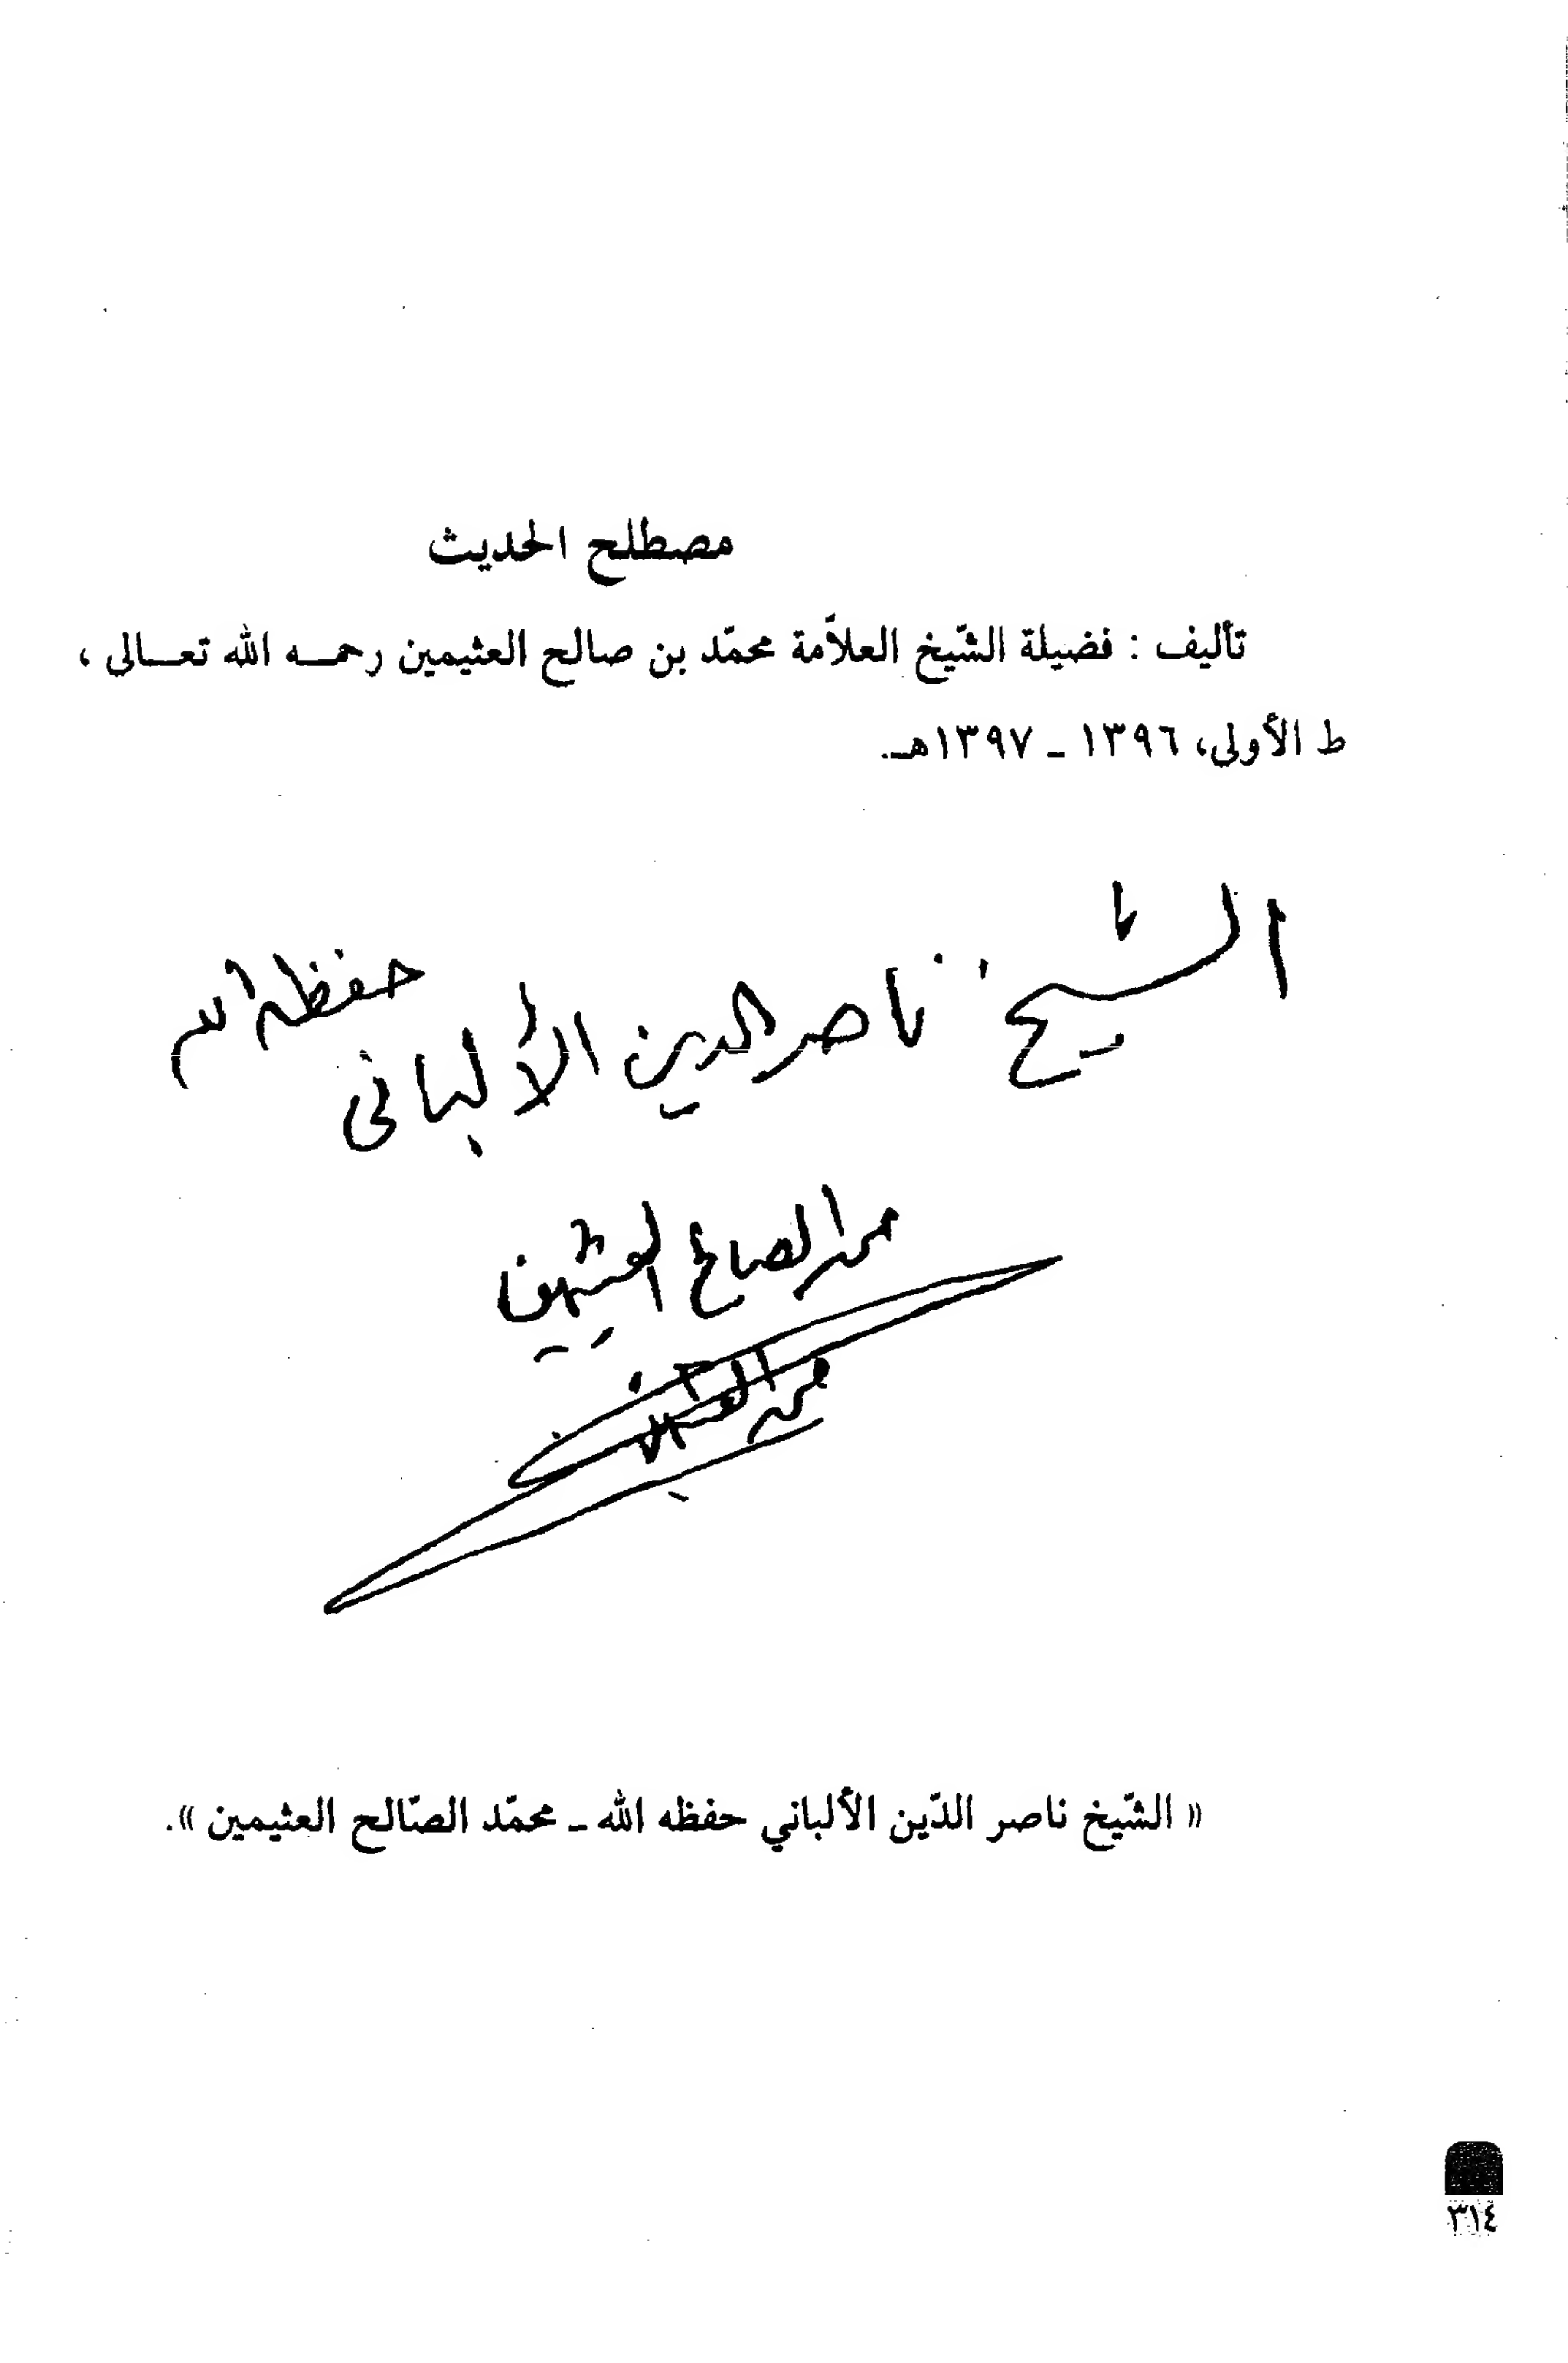 مصطلح الحديث
تأليف : فضيلة الشّيخ العلاّمة محمّد بن صالح العثيمين رحمـــه الله تعـــالى ،
ط الأولى، ١٣٩٦ ـ ١٣٩٧هـ.
الشيخ ناصر الدين الألباني حفظه الله
محمد الصالح العثيمين
محمد العثيمين
« الشّيخ ناصر الدّين الألباني حفظه الله ـ محمّد الصّالح العثيمين ».
٣١٤